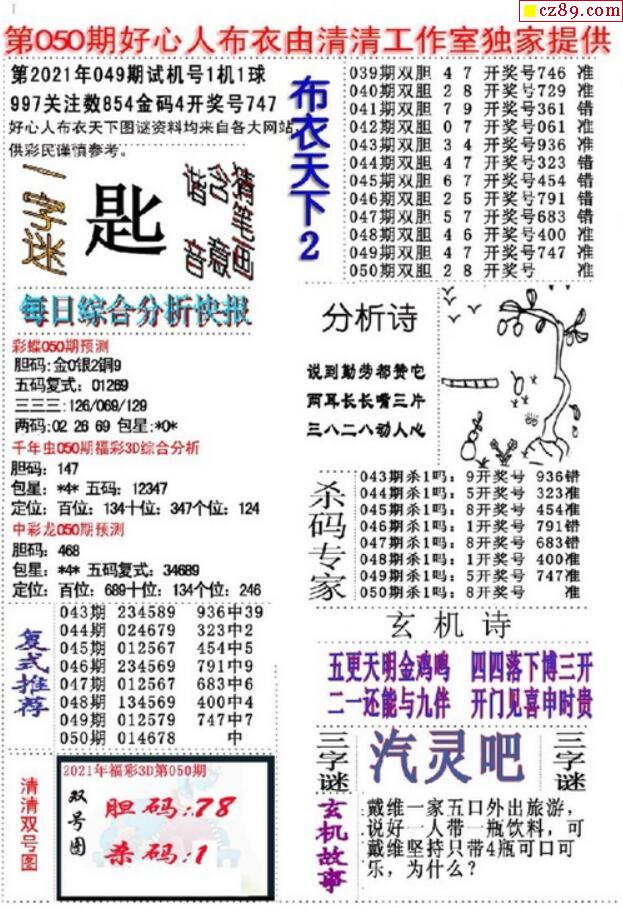 cz89.com
第050期好心人布衣由清清工作室独家提供
第2021年049期试机号1机1球
997关注数854金码4开奖号747
好心人布衣天下图谜资料均来自各大网站
供彩民谨慎参考。
一字迷
匙
猜笔画
含意
谐音
布衣天下2
039期双胆 4 7 开奖号746 准
040期双胆 2 8 开奖号729 准
041期双胆 7 9 开奖号361 错
042期双胆 0 7 开奖号061 准
043期双胆 3 4 开奖号936 准
044期双胆 4 7 开奖号323 错
045期双胆 6 7 开奖号454 错
046期双胆 2 5 开奖号791 错
047期双胆 5 7 开奖号683 错
048期双胆 4 6 开奖号400 准
049期双胆 4 7 开奖号747 准
050期双胆 2 8 开奖号 准
每日綜合分析快报
彩蝶050期预测
胆码:金0银2铜9
五码复式：01269
三三三:126/069/129
两码:02 26 69 包星:*0*
千年虫050期福彩3D综合分析
胆码：147
包星：*4* 五码：12347
定位：百位：134十位：347个位：124
中彩龙050期预测
胆码：468
包星：*4* 五码复式：34689
定位：百位：689十位：134个位：246
分析诗
说到勤劳都赞它
两耳长长嘴三片
三八二八动人心
杀码专家
043期杀1吗：9开奖号 936错
044期杀1吗：5开奖号 323准
045期杀1吗：8开奖号 454准
046期杀1吗：1开奖号 791错
047期杀1吗：8开奖号 683错
048期杀1吗：1开奖号 400准
049期杀1吗：5开奖号 747准
050期杀1吗：8开奖号 准
复式推荐
043期 234589 936中39
044期 024679 323中2
045期 012567 454中5
046期 234569 791中9
047期 012567 683中6
048期 134569 400中4
049期 012579 747中7
050期 014678 中
玄机诗
五更天明金鸡鸣 四四落下博三开
二一还能与九伴 开门见喜申时贵
三字谜
汽灵吧
三字谜
清清双号图
2021年福彩3D第050期
双号图
胆码:78
杀码:1
玄机故事
戴维一家五口外出旅游，
说好一人带一瓶饮料，可
戴维坚持只带4瓶可口可
乐，为什么？